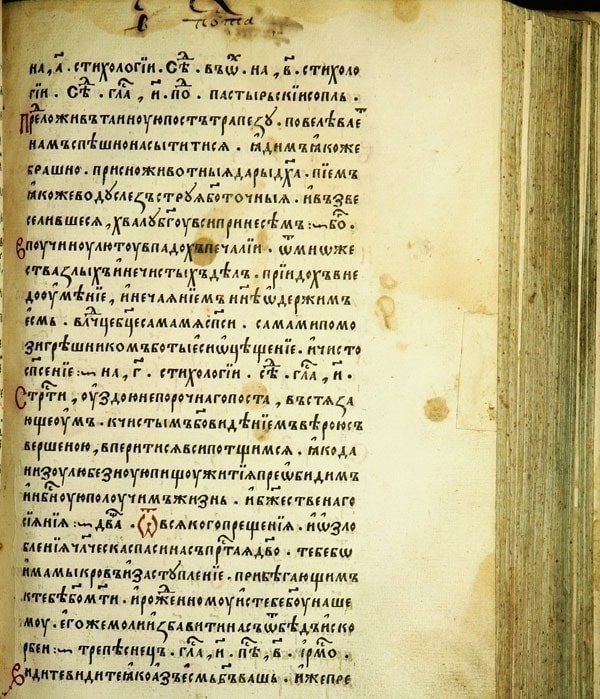 на, а҃. стихологїи. сѣ. въѿ. на, в҃. стихоло
гїи. сѣ. гла, и҃. по. пастырьскїисопль.
Преложивътаиноуюпостътрапезу. повелѣваѐ
намъспѣшнонасытитися. ꙗдимъꙗкоже
брашно. присноживотныядарыдх҃а. пїемъ
ꙗкожеводуслезъструяботочныя. ивъзве
селившеся, хвалубг҃оувсипринесѣмъ:~ бо҃.
Впоучиноулютоувпадохъпечалии. ѿмнѡже
ствазлыхъинечистыхъдѣлъ. прїидохъвне
дооумѣнїе, инечаянїемъннѣѡдержимъ
есмь. влⷣчцебц҃есамамяспси. самамипомо
зигрѣшникомъботыесиѡцѣщенїе. ичисто
спсенїе:~ на, г҃. стихологїи. сѣ. гла, и҃.
Стрⷭти, оуздоюнепорочнагопоста, въстяза
ющеоумъ. кчистымъбовидѣнїемъвѣроюсъ
вершеною, вперитисявсипотщимся. ꙗкода
низоулюбезноуюпищоужитїяпреѡбидимъ
ибн҃оуюполоучимъжизнь. ибжⷭественаго
сїянїя:~ два. Ѿвсякогопрещенїя. иѡзло
бленїячл҃ческаспасинаспртⷭаядво. тебебѡ
имамыкровъизаступленїе. прибѣгающимъ
ктебѣбомт҃и. ирожⷣенномоуистебебоунаше
моу. егожемолиизбавитинасъѿбѣдъиско
рбеи:~ трепѣснецъ. гла, и҃. пѣ, в҃. ірмо.
Видитевидитеꙗкоазъесмьбг҃ъвашь. ижепре